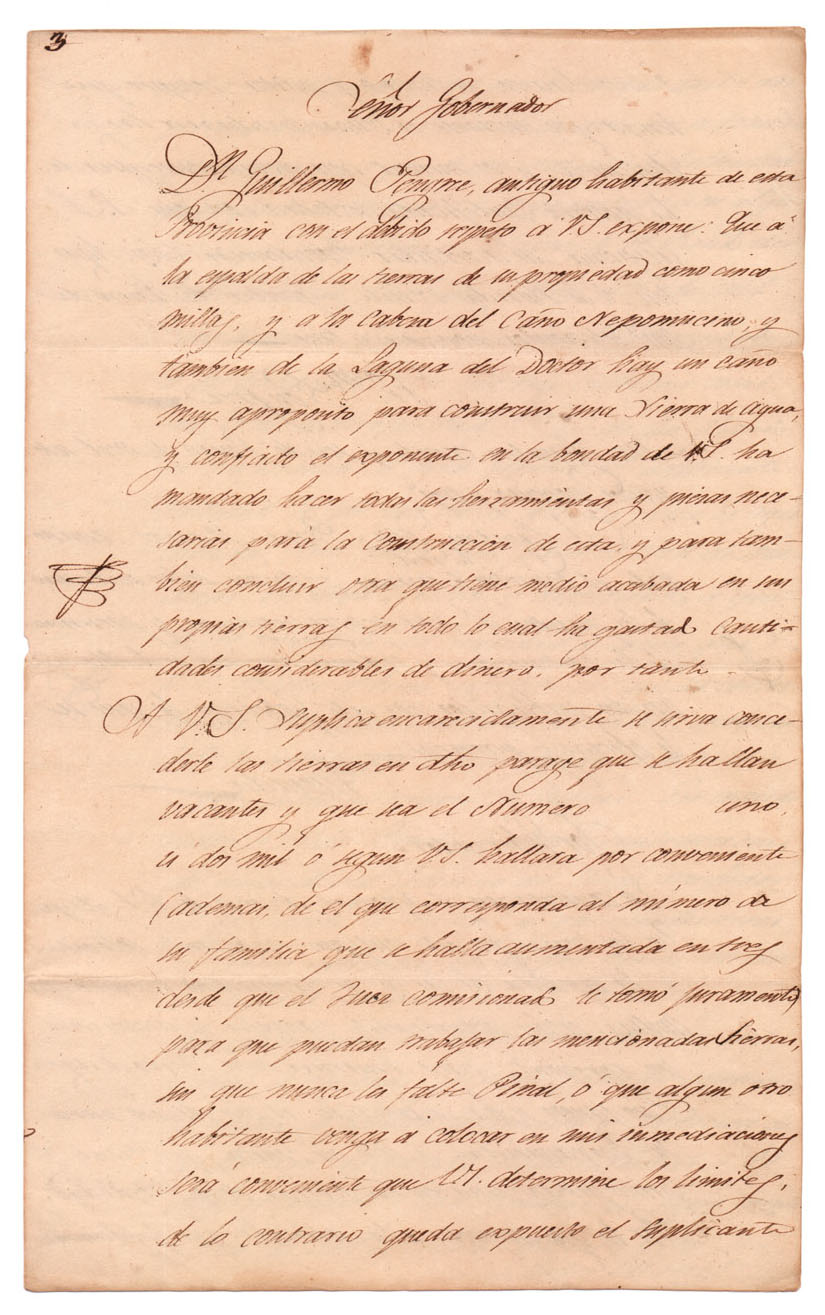 3
Señor Gobernador
Dn Guillermo Pengree, antiguo habitante de esta
Provincia con el debido respeto á VS. expone: Que á
la espalda de las tierras de su propiedad como cinco
millas, y a la cabeza del Caño Nepomuceno, y
también de la Laguna del Doctor hay un caño
muy aproposito para construir una Sierra de agua,
y confiado el exponente en la bondad de V.S. ha
mandado hacer todas las herramientas y piezas nece-
sarias para la Construcción de esta, y para tam-
bien concluir otra que tiene medio acabada en sus
propias tierras en todo lo cual ha gastado Canti-
dades considerables de dinero, por tanto
A V.S. Suplica encarecidamente se sirva conce-
derle las tierras en dho parage que se hallan
vacantes y que sea el Numero uno,
ú dos mil ó segun VS. hallara por conveniente
(ademas, de el que corresponda al número de
su familia que se halla aumentada en tres
desde que el Juez comisionado le tomó juramento)
para que puedan trabajar las mencionadas Sierras,
sin que nunca les falte Pinal, ó que algun otro
habitante venga á colocar en mis inmediaciones
será conveniente que VS. determine los limites,
de lo contrario queda expuesto el Suplicante